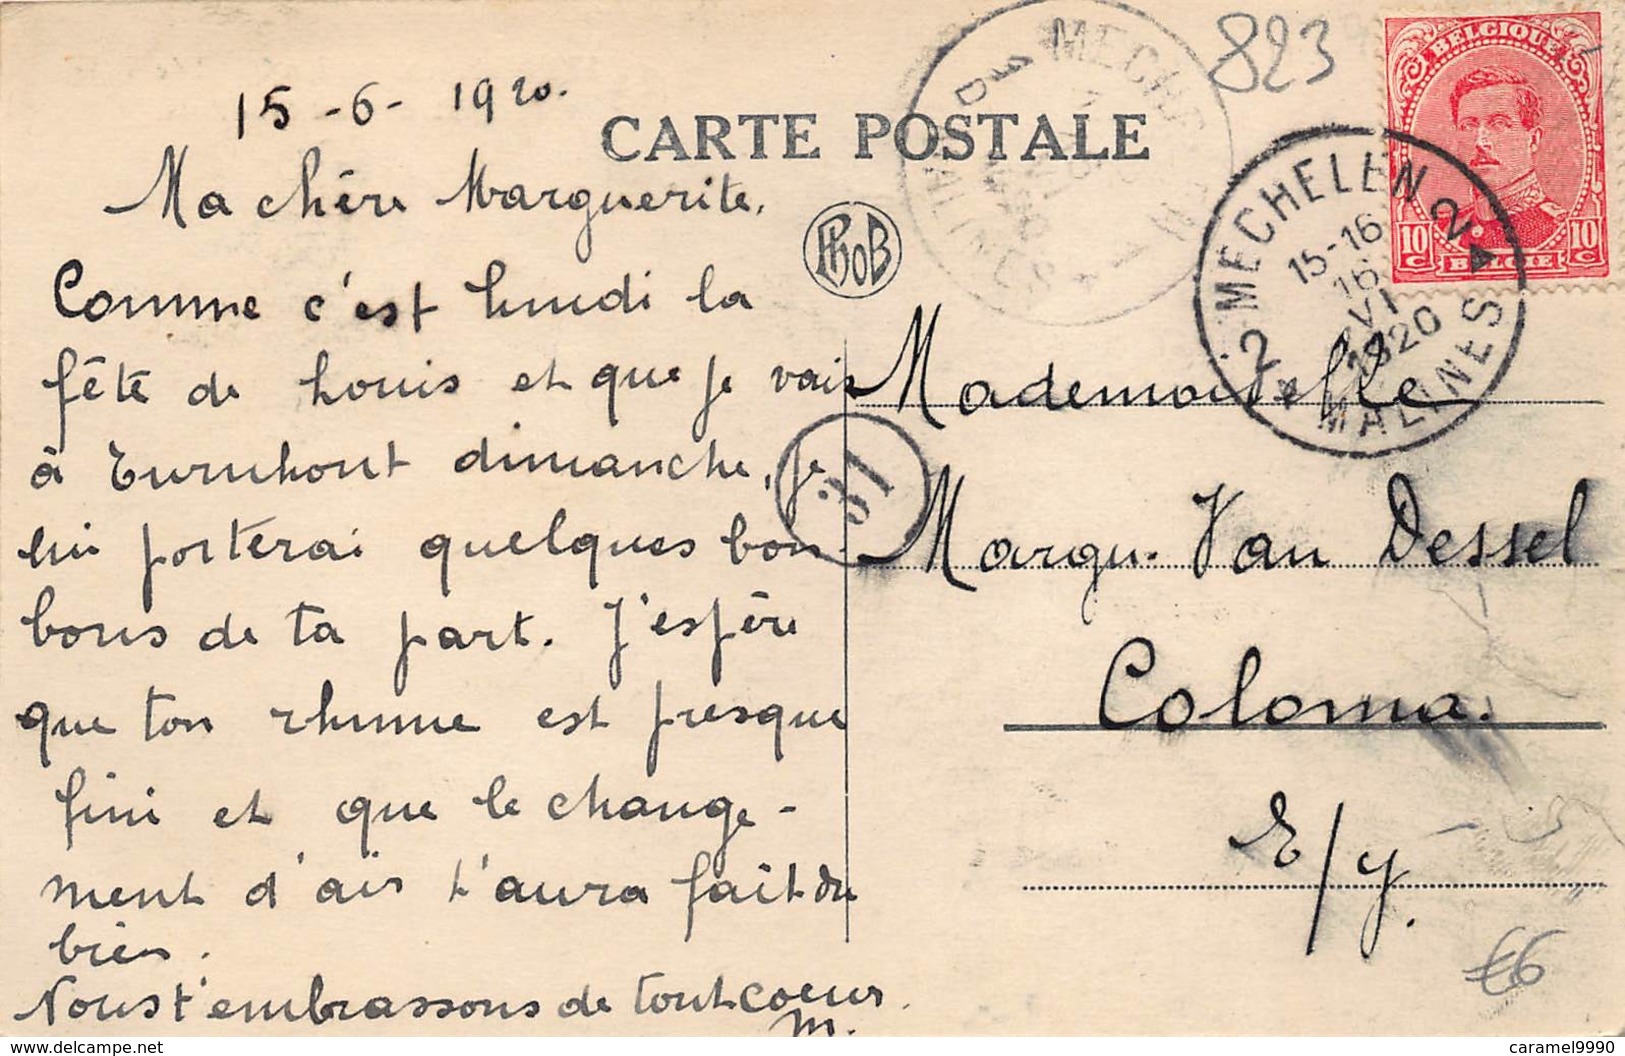 823
15-6-1920.
CARTE POSTALE
BELGIQUE
10 C 10 C
BELGIE
MECHELEN 2
15-16
16
VI
1920
2 MALINES
PhoB
31
Ma chère Marguerite,
Comme c'est lundi la
fête de Louis et que je vais
à Turnhout dimanche, je
lui porterai quelques bon-
bons de ta part. J'espère
que ton rhume est presque
fini et que le change-
ment d'air t'aura fait du
bien.
Nous t'embrassons de tout coeur.
M.
Mademoiselle
Margu. Van Dessel
Coloma.
E/y.
€6
delcampe.net
caramel9990